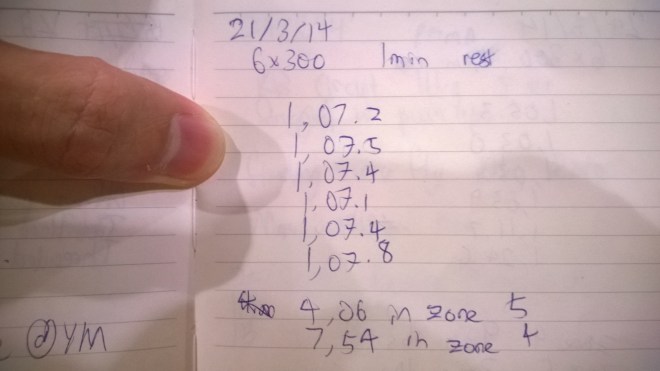 21/3/14
6x300 1min rest
1,07.2
1,07.5
1,07.4
1,07.1
1,07.4
1,07.8
4,06 in zone 5
7,54 in zone 4
@YM